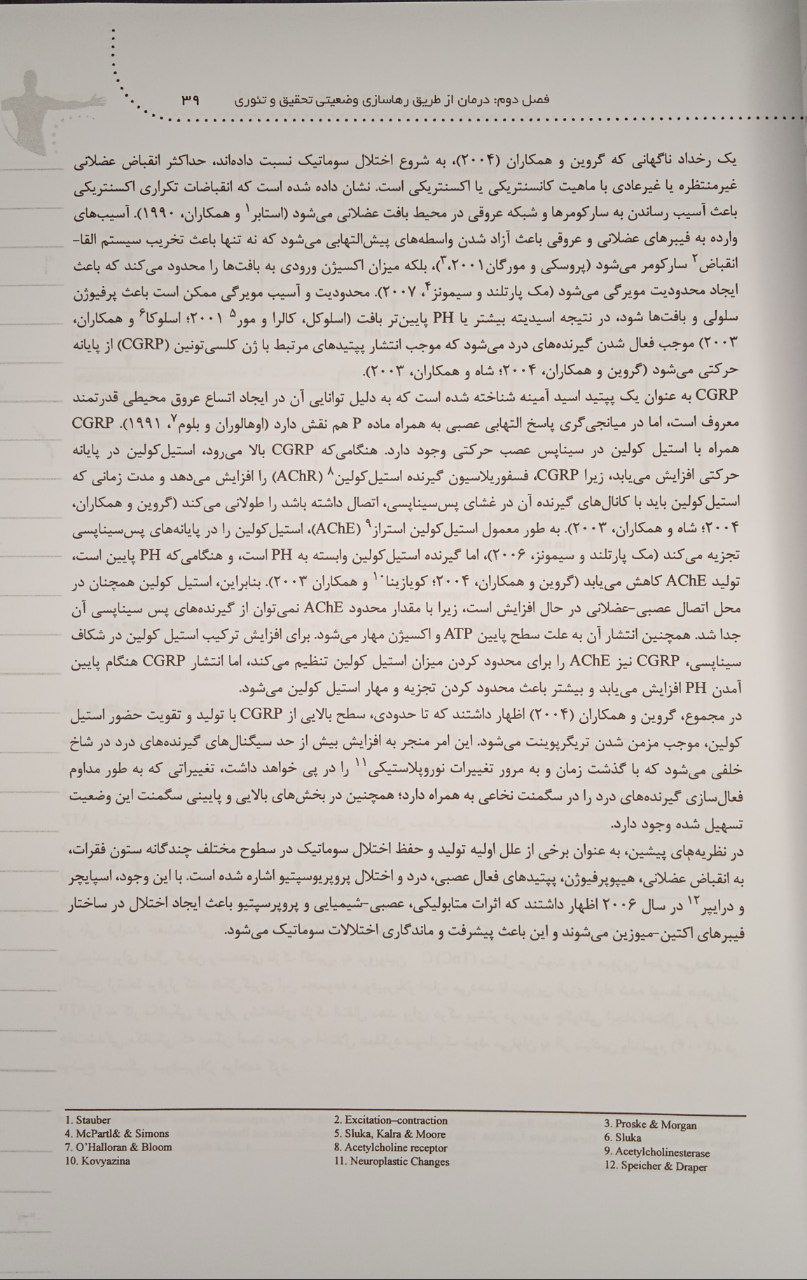 فصل دوم: درمان از طریق رهاسازی وضعیتی تحقیق و تئوری ۳۹
یک رخداد ناگهانی که گروین و همکاران (۲۰۰۴)، به شروع اختلال سوماتیک نسبت داده‌اند، حداکثر انقباض عضلانی
غیرمنتظره یا غیرعادی با ماهیت کانسنتریکی یا اکسنتریکی است. نشان داده شده است که انقباضات تکراری اکسنتریکی
باعث آسیب رساندن به سارکومرها و شبکه عروقی در محیط بافت عضلانی می‌شود (استابر۱ و همکاران، ۱۹۹۰). آسیب‌های
وارده به فیبرهای عضلانی و عروقی باعث آزاد شدن واسطه‌های پیش‌التهابی می‌شود که نه تنها باعث تخریب سیستم القا-
انقباض۲ سارکومر می‌شود (پروسکی و مورگان۳،۲۰۰۱)، بلکه میزان اکسیژن ورودی به بافت‌ها را محدود می‌کند که باعث
ایجاد محدودیت مویرگی می‌شود (مک پارتلند و سیمونز۴، ۲۰۰۷). محدودیت و آسیب مویرگی ممکن است باعث پرفیوژن
سلولی و بافت‌ها شود، در نتیجه اسیدیته بیشتر یا PH پایین‌تر بافت (اسلوکل، کالرا و مور۵ ۲۰۰۱؛ اسلوکا۶ و همکاران،
۲۰۰۳) موجب فعال شدن گیرنده‌های درد می‌شود که موجب انتشار پپتیدهای مرتبط با ژن کلسی‌تونین (CGRP) از پایانه
حرکتی می‌شود (گروین و همکاران، ۲۰۰۴؛ شاه و همکاران، ۲۰۰۳).
CGRP به عنوان یک پپتید اسید آمینه شناخته شده است که به دلیل توانایی آن در ایجاد اتساع عروق محیطی قدرتمند
معروف است، اما در میانجی‌گری پاسخ التهابی عصبی به همراه ماده P هم نقش دارد (اوهالوران و بلوم۷، ۱۹۹۱). CGRP
همراه با استیل کولین در سیناپس عصب حرکتی وجود دارد. هنگامی‌که CGRP بالا می‌رود، استیل‌کولین در پایانه
حرکتی افزایش می‌یابد، زیرا CGRP، فسفوریلاسیون گیرنده استیل‌کولین۸ (AChR) را افزایش می‌دهد و مدت زمانی که
استیل‌کولین باید با کانال‌های گیرنده آن در غشای پس‌سیناپسی، اتصال داشته باشد را طولانی می‌کند (گروین و همکاران،
۲۰۰۴؛ شاه و همکاران، ۲۰۰۳). به طور معمول استیل‌کولین استراز۹ (AChE)، استیل‌کولین را در پایانه‌های پس‌سیناپسی
تجزیه می‌کند (مک پارتلند و سیمونز، ۲۰۰۶)، اما گیرنده استیل‌کولین وابسته به PH است، و هنگامی‌که PH پایین است،
تولید AChE کاهش می‌یابد (گروین و همکاران، ۲۰۰۴؛ کویازینا۱۰ و همکاران ۲۰۰۳). بنابراین، استیل کولین همچنان در
محل اتصال عصبی-عضلانی در حال افزایش است، زیرا با مقدار محدود AChE نمی‌توان از گیرنده‌های پس سیناپسی آن
جدا شد. همچنین انتشار آن به علت سطح پایین ATP و اکسیژن مهار می‌شود. برای افزایش ترکیب استیل کولین در شکاف
سیناپسی، CGRP نیز AChE را برای محدود کردن میزان استیل کولین تنظیم می‌کند، اما انتشار CGRP هنگام پایین
آمدن PH افزایش می‌یابد و بیشتر باعث محدود کردن تجزیه و مهار استیل کولین می‌شود.
در مجموع، گروین و همکاران (۲۰۰۴) اظهار داشتند که تا حدودی، سطح بالایی از CGRP با تولید و تقویت حضور استیل
کولین، موجب مزمن شدن تریگرپوینت می‌شود. این امر منجر به افزایش بیش از حد سیگنال‌های گیرنده‌های درد در شاخ
خلفی می‌شود که با گذشت زمان و به مرور تغییرات نوروپلاستیکی۱۱ را در پی خواهد داشت، تغییراتی که به طور مداوم
فعال‌سازی گیرنده‌های درد را در سگمنت نخاعی به همراه دارد؛ همچنین در بخش‌های بالایی و پایینی سگمنت این وضعیت
تسهیل شده وجود دارد.
در نظریه‌های پیشین، به عنوان برخی از علل اولیه تولید و حفظ اختلال سوماتیک در سطوح مختلف چندگانه ستون فقرات،
به انقباض عضلانی، هیپوپرفیوژن، پپتیدهای فعال عصبی، درد و اختلال پروپریوسپتیو اشاره شده است. با این وجود، اسپایچر
و درایپر۱۲ در سال ۲۰۰۶ اظهار داشتند که اثرات متابولیکی، عصبی-شیمیایی و پروپرسپتیو باعث ایجاد اختلال در ساختار
فیبرهای اکتین-میوزین می‌شوند و این باعث پیشرفت و ماندگاری اختلالات سوماتیک می‌شود.
1. Stauber 2. Excitation–contraction 3. Proske & Morgan
4. McPartl& & Simons 5. Sluka, Kalra & Moore 6. Sluka
7. O'Halloran & Bloom 8. Acetylcholine receptor 9. Acetylcholinesterase
10. Kovyazina 11. Neuroplastic Changes 12. Speicher & Draper